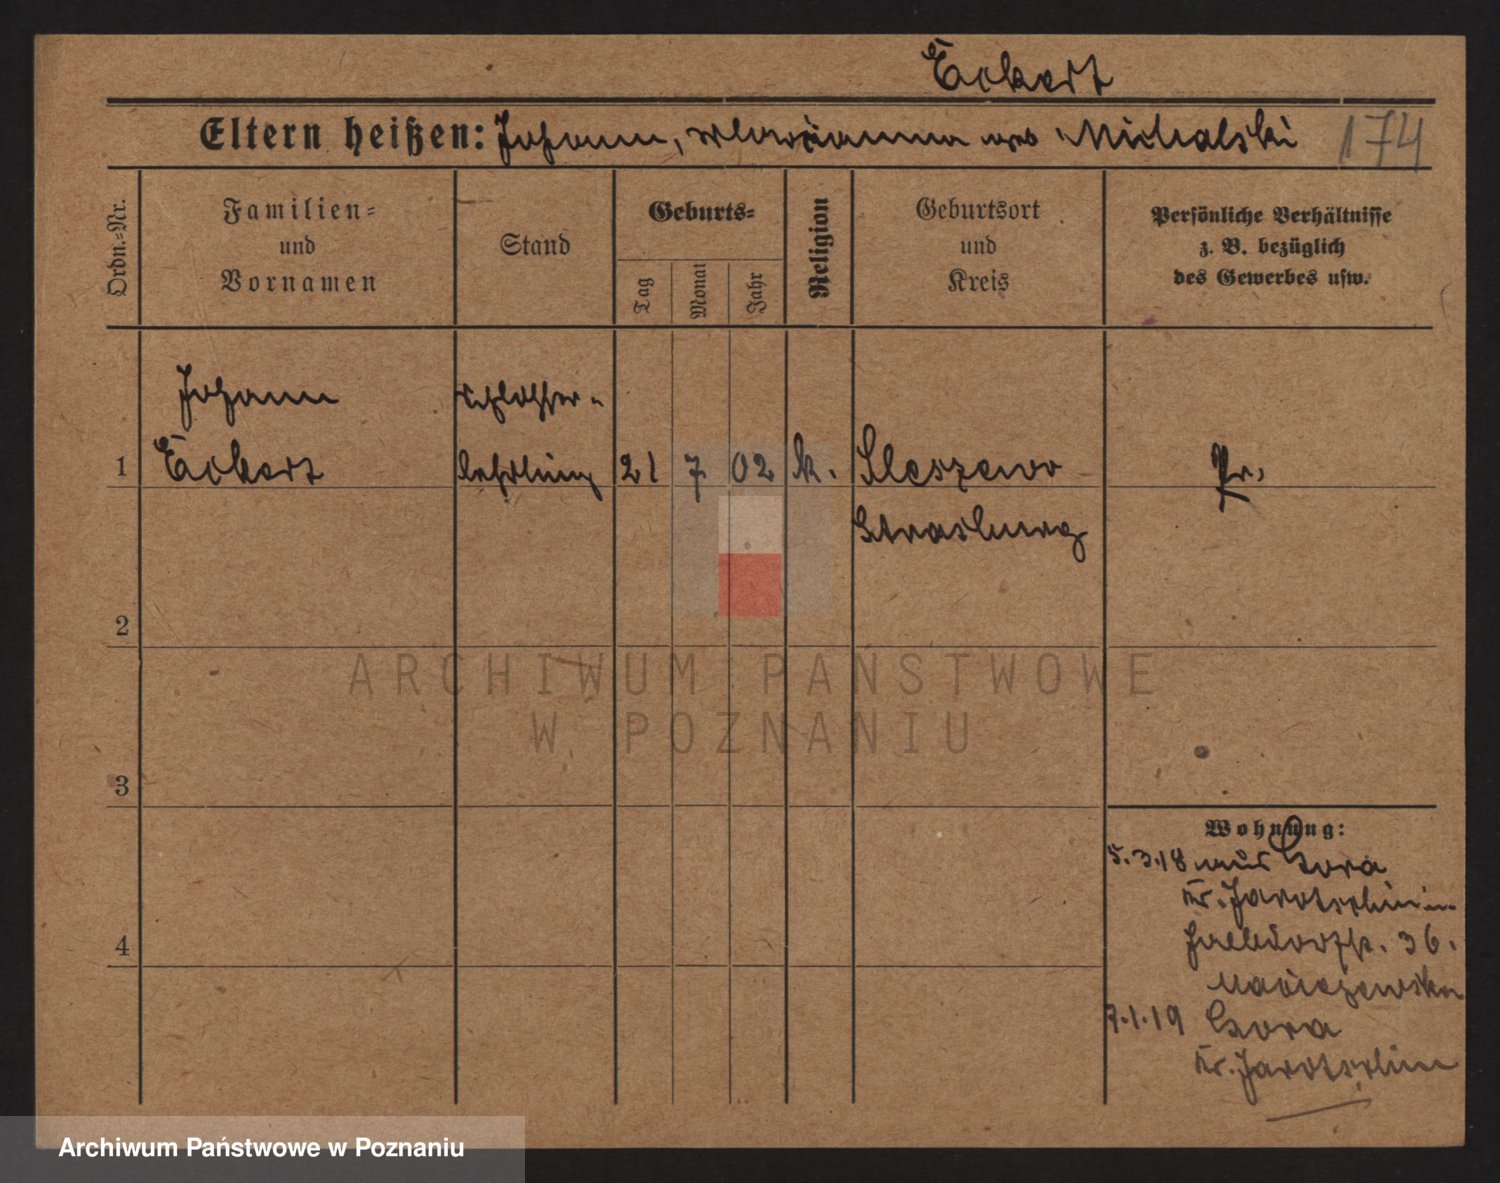 Eckert
Eltern heißen: Johann, Marianna geb Michalski 174
Ordn.=Nr.
Familien=
und
Vornamen
Stand
Geburts=
Tag
Monat
Jahr
Religion
Geburtsort
und
Kreis
Persönliche Verhältnisse
z. B. bezüglich
des Gewerbes usw.
Johann Schlosser-
1 Eckert lehrling 21 7 02 k. Sleszewo Pr.
Strasburg
2
ARCHIWUM PAŃSTWOWE
W POZNANIU
3
Wohnung:
5.3.18 aus Gora
Kr. Jarotschin in
Halbdorfstr. 36.
4
Maciejewska
7.1.19 Gora
Kr. Jarotschin
Archiwum Państwowe w Poznaniu